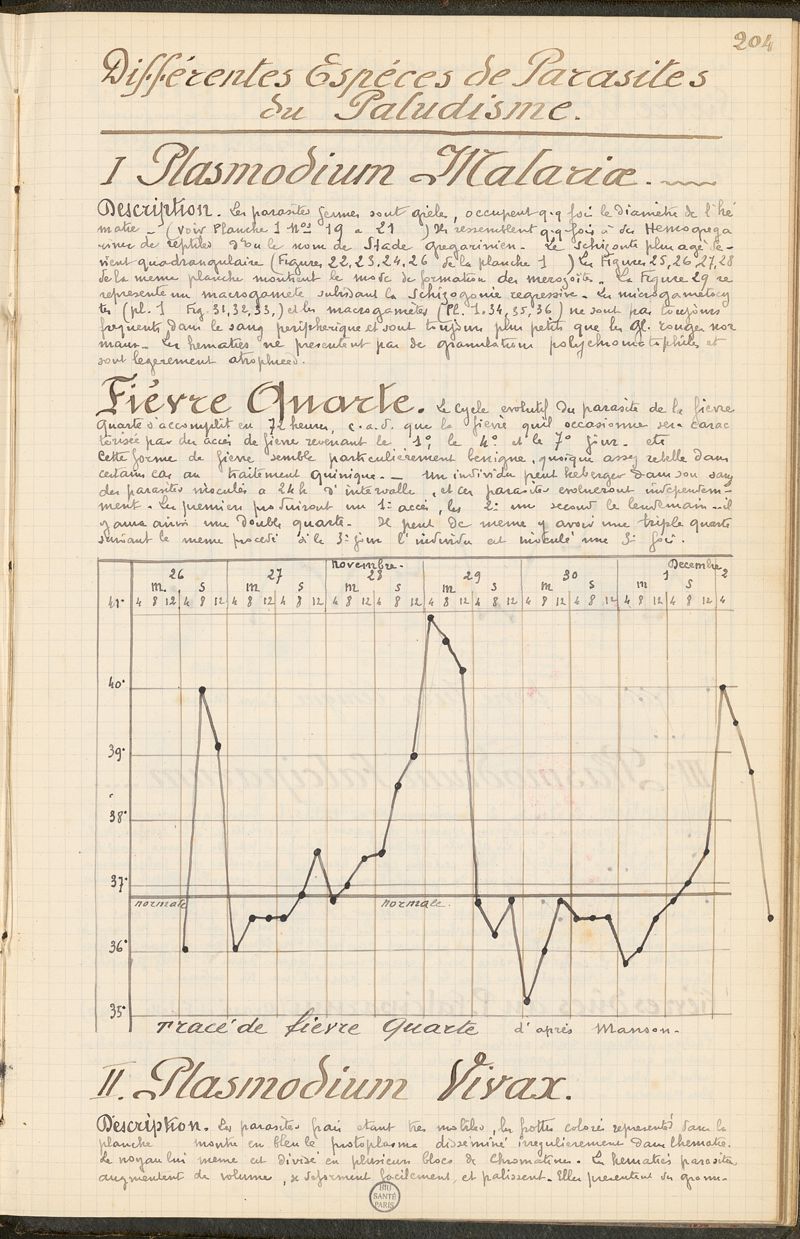 204
Différentes Espéces de Parasites
du Paludisme.
I Plasmodium Malariæ.
Description. Les parasites jeunes sont grêles, occupent q.q fois le diamètre de l'hé
matie - (voir Planche 1 Nos 19 a 21 ) Ils ressemblent q.q fois à des Hemogrega
rines de reptiles d'ou le nom de Stade gregarinien. Le schizonte plus agé de-
vient quadrangulaire (Figures 22, 23, 24, 26 de la planche 1 ) Les Figures 25, 26, 27, 28
de la meme planche montrent le mode de formation des merozoites. La Figure 29 re
represente un macrogamete subissant la schizogonie regressive. Les microgametocy
tes (pl. 1 Fig. 31, 32, 33,) et les macrogametes (Pl. 1. 34, 35, 36) ne sont pas toujours
frequents dans le sang peripherique et sont toujours plus petits que les Gl. rouges nor
maux. Les hematies ne presentent pas de granulations polychromatophiles et
sont legerement atrophiees.
Fiévre Quarte. Le cycle evolutif du parasite de la fievre
quarte s'accomplit en 72 heures, c.a.d. que la fievre qu'il occasionne sera carac
térisée par des accès de fievre revenant le 1º, le 4º et le 7º jour. etc
Cette forme de fievre semble particulièrement benigne, quoique assez rebelle dans
certains cas au traitement quinique. - Un individu peut heberger dans son sang
des parasites inoculés a 24h d'intervalle, et ces parasites evolueront independem-
ment. Les premiers produiront un 1º accès, les 2º un second le lendemain - il
y aura ainsi une double quarte. Il peut de meme y avoir une triple quarte
suivant le meme procédé si le 3º jour l'individu est inoculé une 3º fois.
novembre. Decembre
26 27 28 29 30 1 2
m. s m s m s m s m s m s
41° 4 8 12 4 8 12 4 8 12 4 8 12 4 8 12 4 8 12 4 8 12 4 8 12 4 8 12 4 8 12 4 8 12 4 8 12 4
40°
39°
38°
37°
normale normale.
36°
35°
Tracé de fievre Quarte d'après Manson.
II. Plasmodium Vivax.
Description. Les parasites frais etant tres mobiles, les frottis colorés representés dans la
planche montre en bleu le protoplasma disséminé irregulierement dans l'hematie.
Le noyau lui meme est divisé en plusieurs blocs de Chromatine. Les hematies parasitées
augmentent de volume, se deforment facilement, et palissent. Elles presentent des granu-
BIU
SANTÉ
PARIS